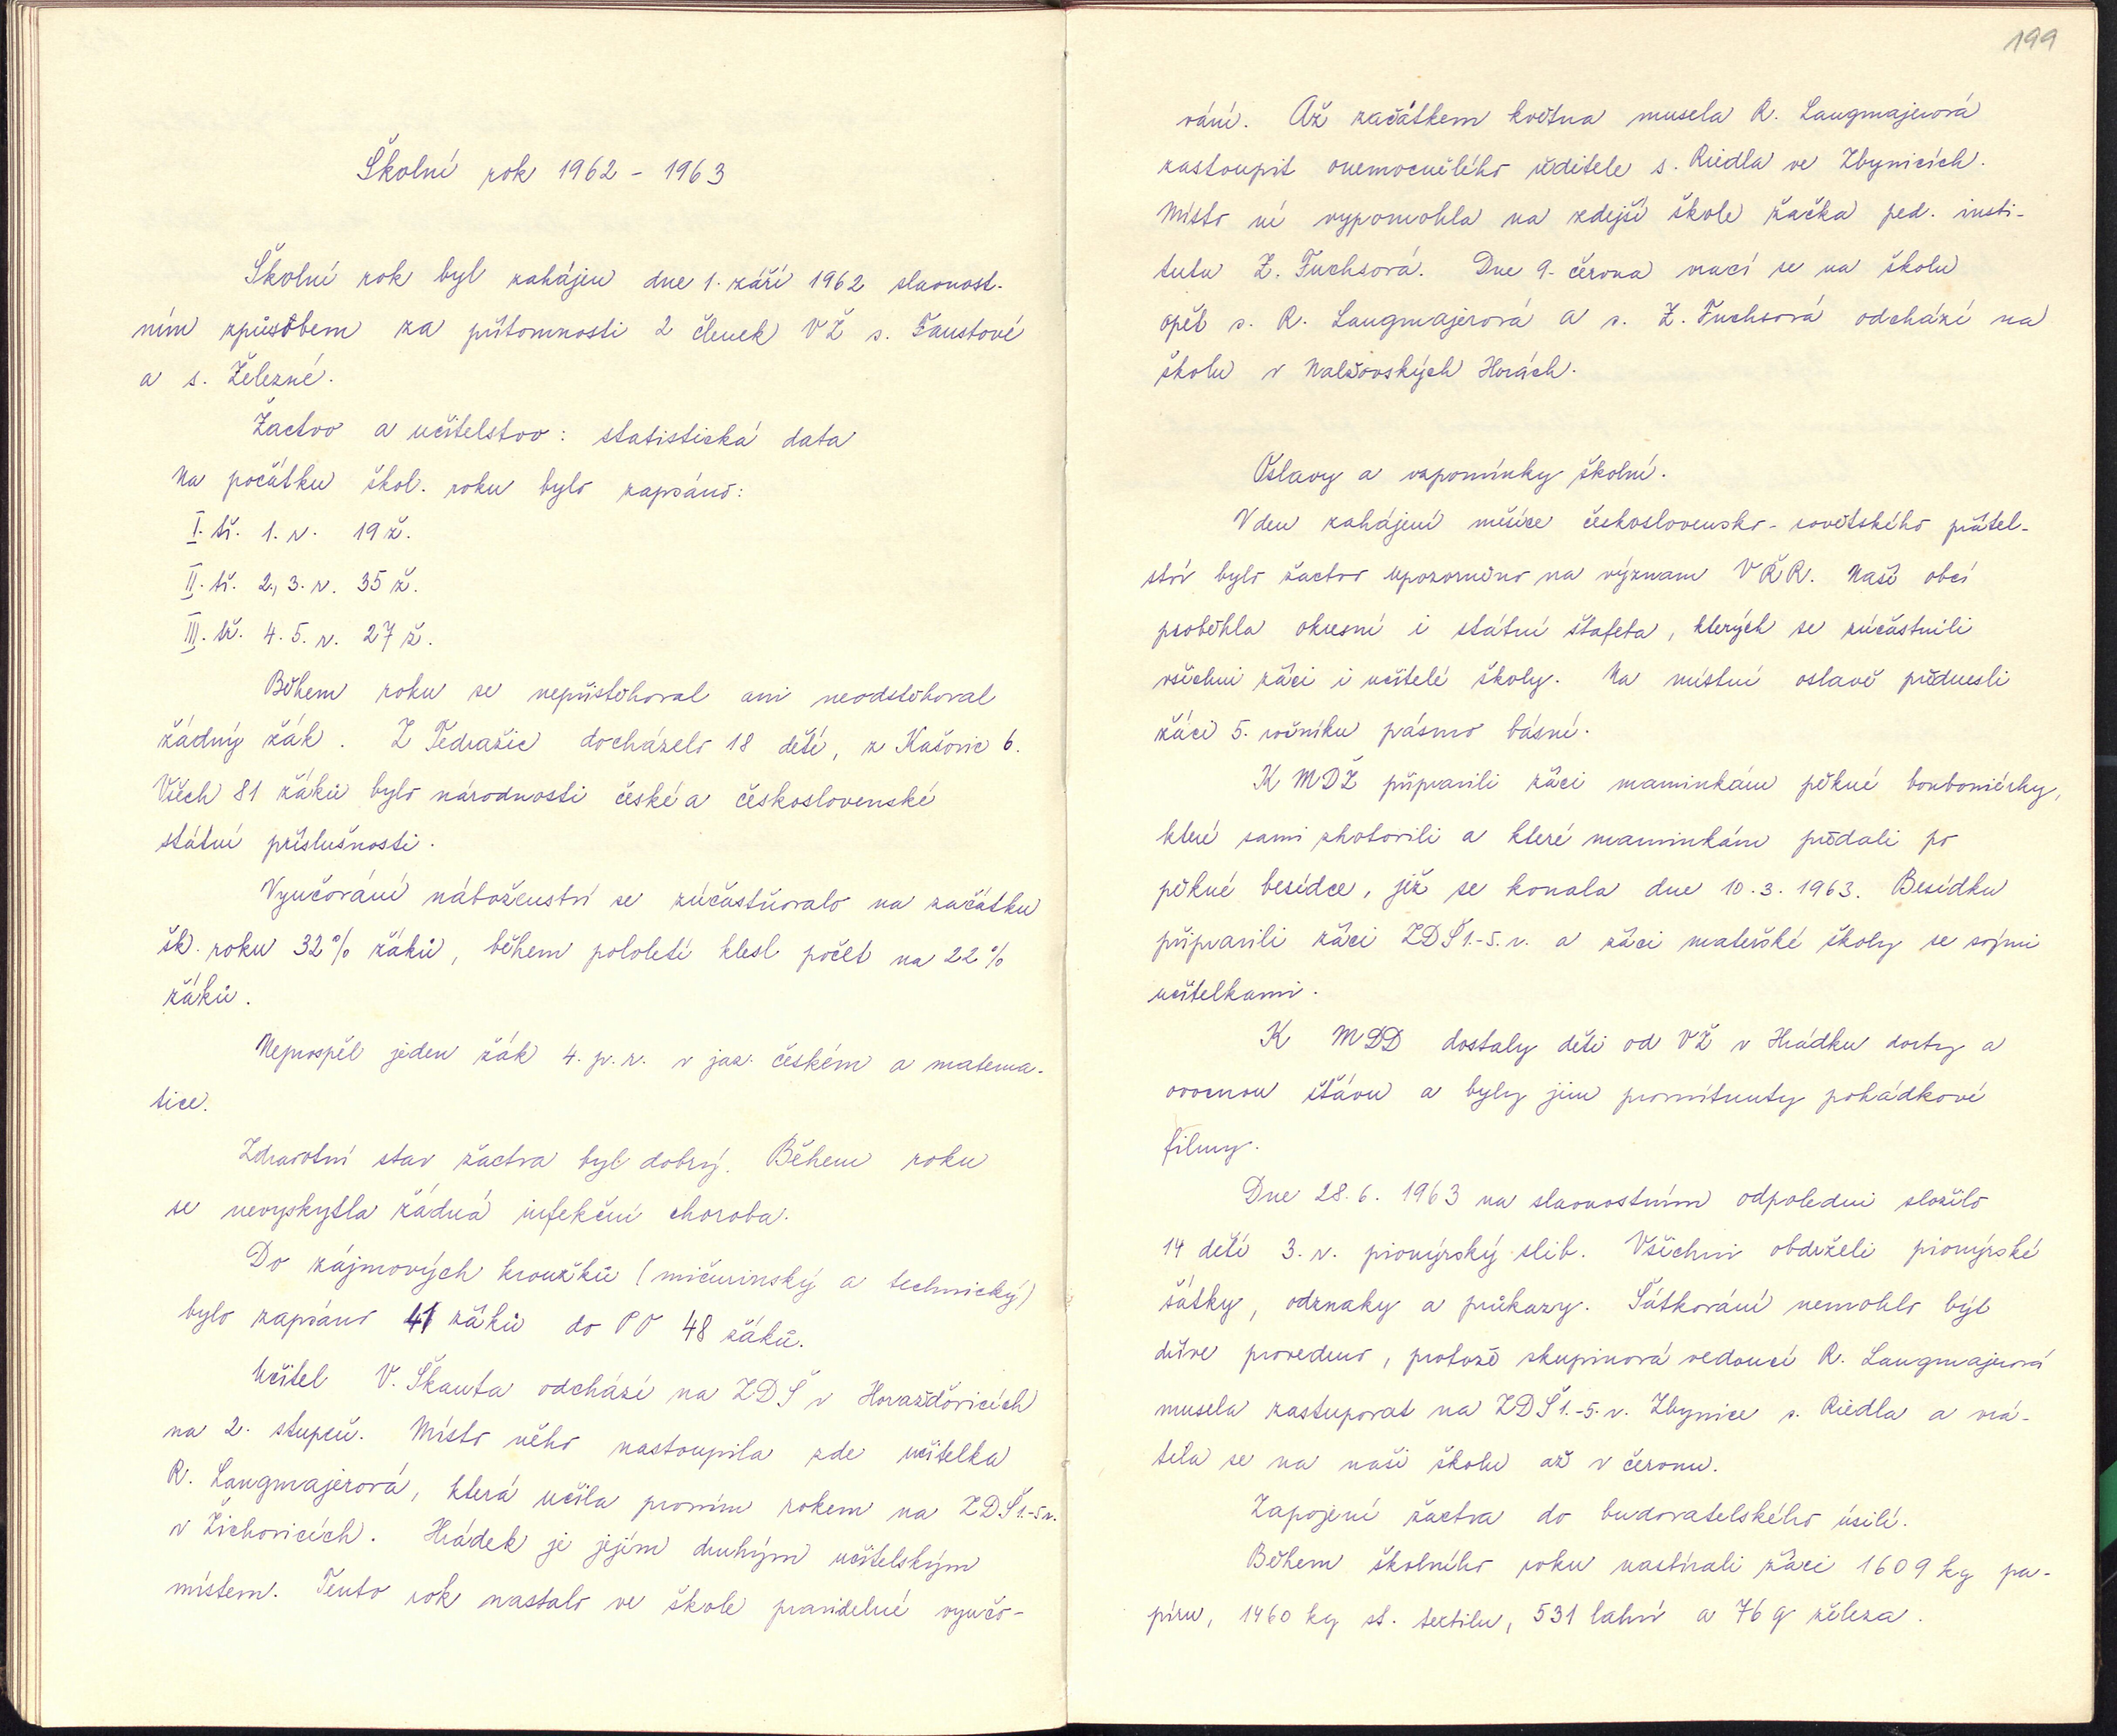 Školní rok 1962 - 1963
Školní rok byl zahájen dne 1. září 1962 slavnost-
ním způsobem za přítomnosti 2 členek VŽ s. Faustové
a s. Železné.
Žactvo a učitelstvo: statistická data
Na počátku škol. roku bylo zapsáno:
I. tř. 1. r. 19 ž.
II. tř. 2., 3. r. 35 ž.
III. tř. 4. 5. r. 27 ž.
Během roku se nepřistěhoval ani neodstěhoval
žádný žák. Z Tedražic docházelo 18 dětí, z Kašovic 6.
Všech 81 žáků bylo národnosti české a československé
státní příslušnosti.
Vyučování náboženství se zúčastňovalo na začátku
šk. roku 32% žáků, během pololetí klesl počet na 22%
žáků.
Neprospěl jeden žák 4. p. r. v jaz. českém a matema-
tice.
Zdravotní stav žactva byl dobrý. Během roku
se nevyskytla žádná infekční choroba.
Do zájmových kroužků (mičurinský a technický)
bylo zapsáno 41 žáků do PO 48 žáků.
Učitel V. Škanta odchází na ZDŠ v Horažďovicích
na 2. stupeň. Místo něho nastoupila zde učitelka
R. Langmajerová, která učila prvním rokem na ZDŠ 1.-5 r.
v Žichovicích. Hrádek je jejím druhým učitelským
místem. Tento rok nastalo ve škole pravidelné vyučo-
199
vání. Až začátkem května musela R. Langmajerová
zastoupit onemocnělého ředitele s. Riedla ve Zbynicích.
Místo ní vypomohla na zdejší škole žačka ped. insti-
tutu Z. Fuchsová. Dne 9. června vrací se na školu
opět s. R. Langmajerová a s. Z. Fuchsová odchází na
školu v Nalžovských Horách.
Oslavy a vzpomínky školní.
V den zahájení měsíce československo-sovětského přátel-
ství bylo žactvo upozorněno na význam VŘR. Naší obcí
proběhla okresní i státní štafeta, kterých se zúčastnili
všichni žáci i učitelé školy. Na místní oslavě přednesli
žáci 5. ročníku pásmo básní.
K MDŽ připravili žáci maminkám pěkné bonboniérky,
které sami zhotovili a které maminkám předali po
pěkné besídce, jež se konala dne 10. 3. 1963. Besídku
připravili žáci ZDŠ 1.-5. r. a žáci mateřské školy se svými
učitelkami.
K MDD dostaly děti od VŽ v Hrádku dorty a
ovocnou šťávu a byly jim promítnuty pohádkové
filmy.
Dne 28. 6. 1963 na slavnostním odpoledni složilo
14 dětí 3. r. pionýrský slib. Všichni obdrželi pionýrské
šátky, odznaky a průkazy. Šátkování nemohlo být
dříve provedeno, protože skupinová vedoucí R. Langmajerová
musela zastupovat na ZDŠ 1.-5. r. Zbynice s. Riedla a vrá-
tila se na naši školu až v červnu.
Zapojení žactva do budovatelského úsilí.
Během školního roku nasbírali žáci 1609 kg pa-
píru, 1460 kg st. textilu, 531 lahví a 76 q železa.